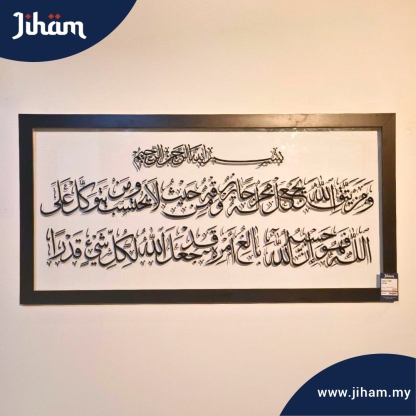 Jihäm
بسم الله الرحمن الرحيم
ومن يتق الله يجعل له مخرجا ويرزقه من حيث لا يحتسب ومن يتوكل على
الله فهو حسبه إن الله بالغ أمره قد جعل الله لكل شيء قدرا
www.jiham.my